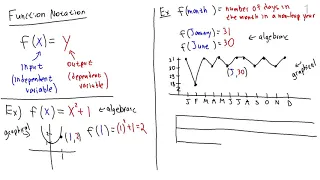 Function Notation
f(x) = y
input
(independent
variable)
output
(dependent
variable)
Ex) f(x) = x²+1 ← algebraic
graphical
(1,2)
f(1) = (1)²+1 = 2
1
Ex f(month) = number of days in
the month in a non-leap year
f(January) = 31
f(June) = 30
← algebraic
31
30
28
(J,30)
graphical
J F M A M J J A S O N D